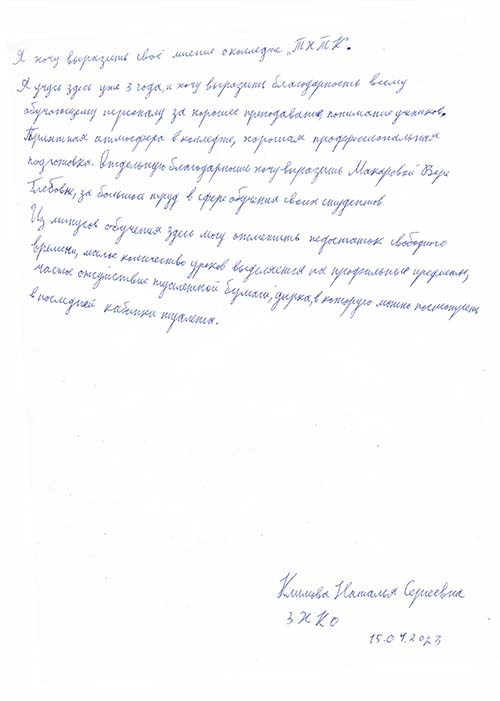 Я хочу выразить своё мнение о колледже „ТХТК".
Я учусь здесь уже 3 года, и хочу выразить благодарность всему
обучающему персоналу за хорошее преподавание, понимание учеников.
Приятная атмосфера в колледже, хорошая профессиональная
подготовка. Отдельную благодарность хочу выразить Макаровой Вере
Глебовне, за большой труд в сфере обучения своих студентов.
Из минусов обучения здесь могу отметить недостаток свободного
времени, малое количество уроков выделяется на профильные предметы,
частое отсутствие туалетной бумаги, дырка, в которую можно посмотреть
в последней кабинки туалета.
Климова Наталья Сергеевна
3 ХКО
15.04.2023